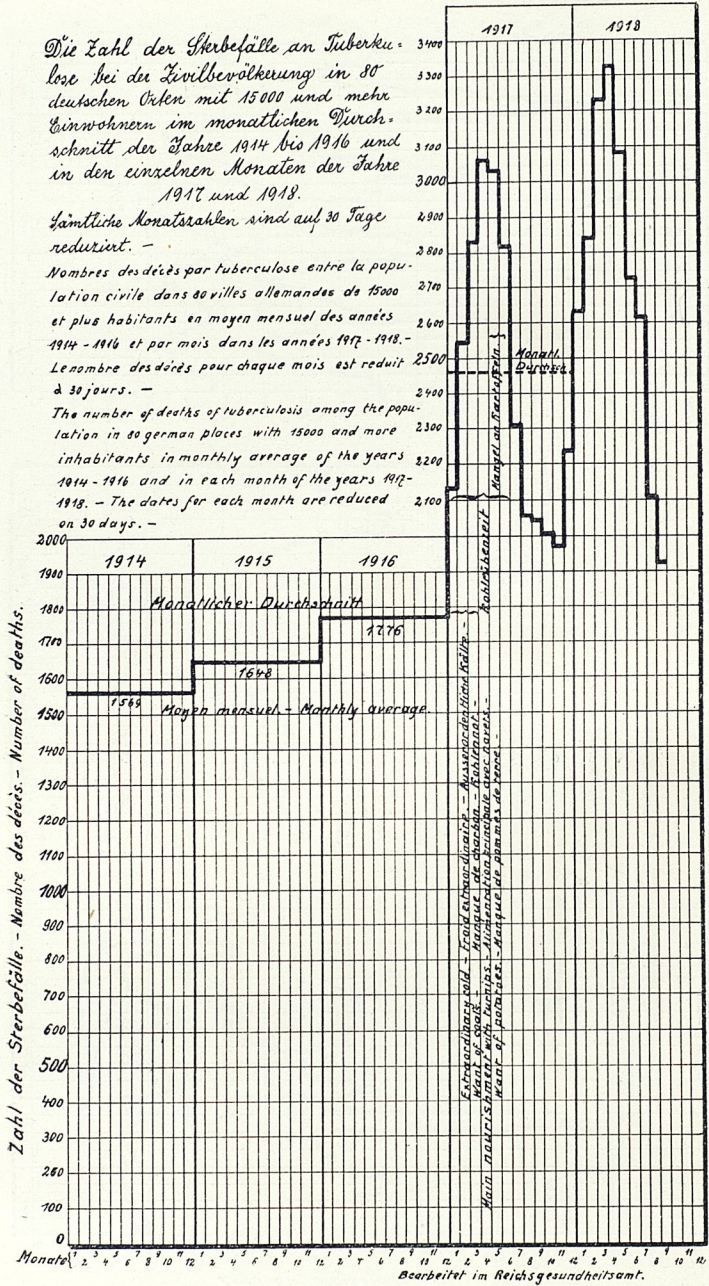 Die Zahl der Sterbefälle an Tuberku=
lose bei der Zivilbevölkerung in 80
deutschen Orten mit 15000 und mehr
Einwohnern im monatlichen Durch=
schnitt der Jahre 1914 bis 1916 und
in den einzelnen Monaten der Jahre
1917 und 1918.
Sämtliche Monatszahlen sind auf 30 Tage
reduziert. –
Nombres des décès par tuberculose entre la popu-
lation civile dans 80 villes allemandes de 15000
et plus habitants en moyen mensuel des années
1914-1916 et par mois dans les années 1917-1918.-
Le nombre des décès pour chaque mois est reduit
à 30 jours. –
The number of deaths of tuberculosis among the popu-
lation in 80 german places with 15000 and more
inhabitants in monthly average of the years
1914-1916 and in each month of the years 1917-
1918. – The dates for each month are reduced
on 30 days. –
1917 1918
3400
3300
3200
3100
3000
2900
2800
2700
2600
2500
2400
2300
2200
2,100
Monatl.
Durchsch.
Mangel an Kartoffeln.
Kohlrübenzeit
1914 1915 1916
2000
1900
1800
1700
1600
1500
1400
1300
1200
1100
1000
900
800
700
600
500
400
300
200
100
0
Monatlicher Durchschnitt
1776
1648
1569
Moyen mensuel. – Monthly average.
Extraordinary cold. – Froid extraordinaire. – Ausserordentliche Kälte. –
Want of coals. – Manque de charbon. – Kohlennot. –
Main nourishment with turnips. – Alimentation principale avec navets. –
Want of potatoes. – Manque de pommes de terre. –
Zahl der Sterbefälle. – Nombre des décès. – Number of deaths.
Monate 1 2 3 4 5 6 7 8 9 10 11 12 1 2 3 4 5 6 7 8 9 10 11 12 1 2 3 4 5 6 7 8 9 10 11 12 1 2 3 4 5 6 7 8 9 10 11 12 1 2 3 4 5 6 7 8 9 10 11 12
Bearbeitet im Reichsgesundheitsamt.